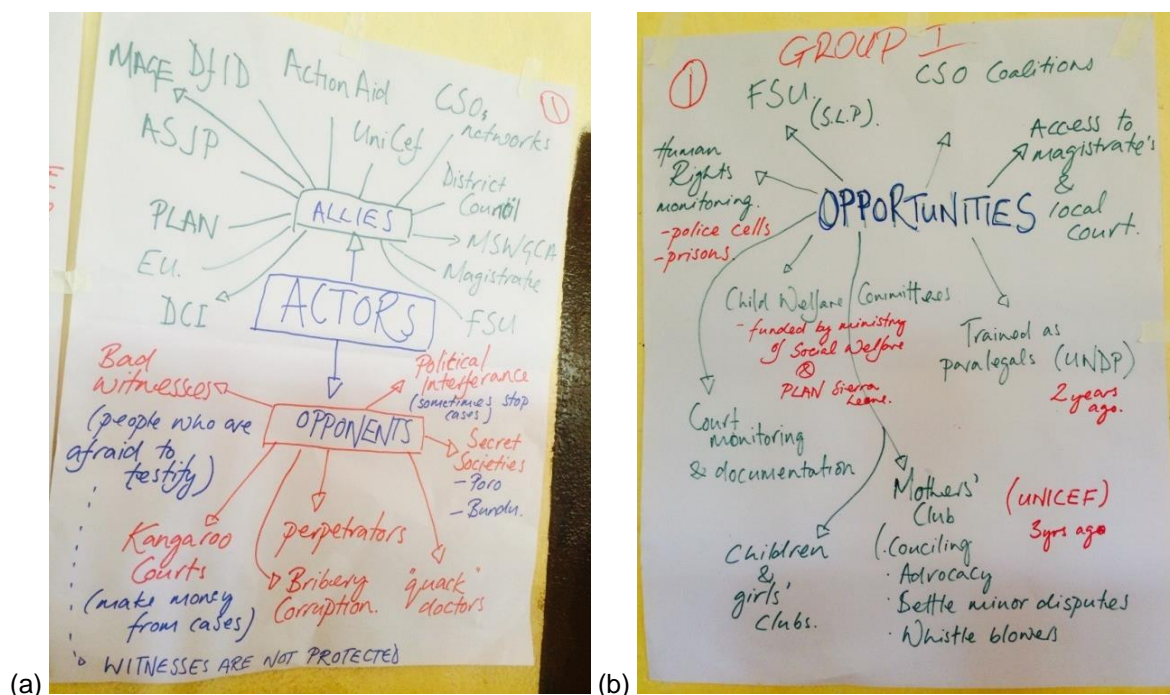 ①
MAGE
DfID
Action Aid
CSOs
networks
ASJP
UniCef
District
Council
ALLIES
PLAN
MSWGCA
EU.
Magistrate
DCI
FSU
ACTORS
Bad
witnesses
(people who are
afraid to
testify)
Political
Interferance
(sometimes stop
cases)
OPPONENTS
Secret
Societies
- Poro
- Bundu.
Kangaroo
Courts
(make money
from cases)
perpetrators
Bribery
Corruption.
"quack"
doctors
WITNESSES ARE NOT PROTECTED
(a)
GROUP I
①
FSU.
(S.L.P).
CSO Coalitions
Human
Rights
monitoring.
- police cells
- prisons.
Access to
magistrate's
&
local
court.
OPPORTUNITIES
Child Welfare Committees
- funded by ministry
of Social Welfare
&
PLAN Sierra
Leone.
Trained as
paralegals (UNDP)
2 years
ago.
Court
monitoring
& documentation
Mothers'
Club
(UNICEF)
3yrs ago
(. Conciling
. Advocacy
. Settle minor disputes
. Whistle blowers
Children
&
girls'
clubs.
(b)